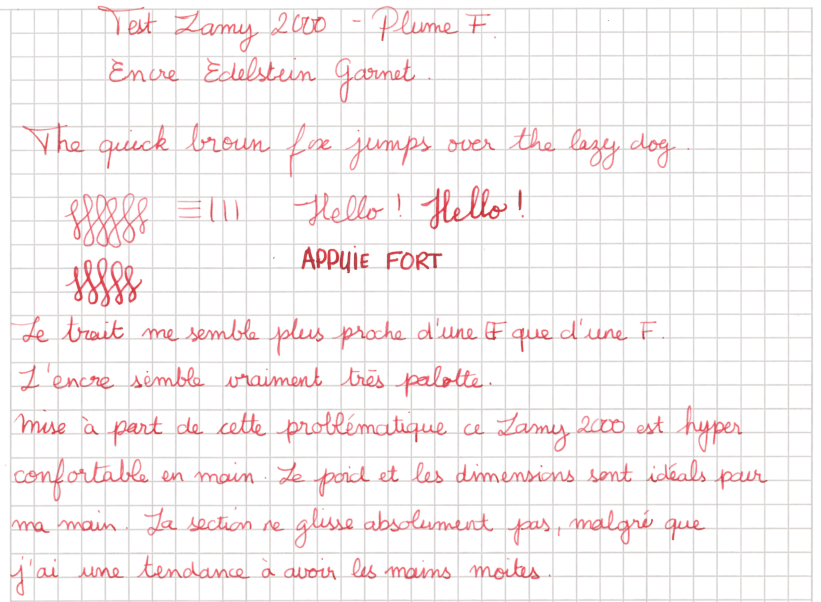 Test Lamy 2000 - Plume F
Encre Edelstein Garnet.
The quick broun fox jumps over the lazy dog.
Hello ! Hello !
APPUIE FORT
Le trait me semble plus proche d'une EF que d'une F.
L'encre semble vraiment très palotte.
Mise à part de cette problématique ce Lamy 2000 est hyper
confortable en main. Le poid et les dimensions sont idéals pour
ma main. La section ne glisse absolument pas, malgré que
j'ai une tendance à avoir les mains moites.